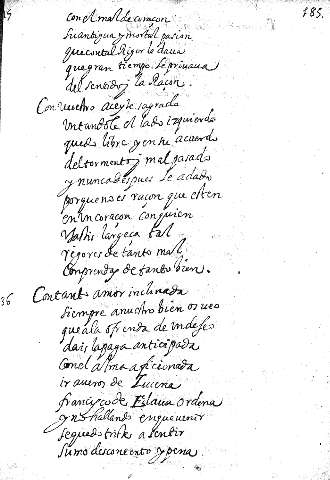 185.
con el mal de coraçon
su antigua y mortal pasion
que con tal Rigor le daua
que gran tiempo se priuaua
del sentido y la Raçon.
Con vuestro aceyte sagrado
Untandole el lado izquierdo
quedo libre y en he acuerdo
del tormento y mal pasado
y nunca despues le a dado
porque no es raçon que esten
en un coraçon con quien
tal
rigores de tanto mal
de tanto bien.
36
Con tanto amor inclinada
siempre a nuestro bien os veo
que a la ofrenda de un deseo
dais la paga anticipada
Con el alma aficionada
ir a veros de Lucena
francisco de Eslaua ordena
y no hallando en que venir
se quedo triste a sentir
sumo desconcento y pena.